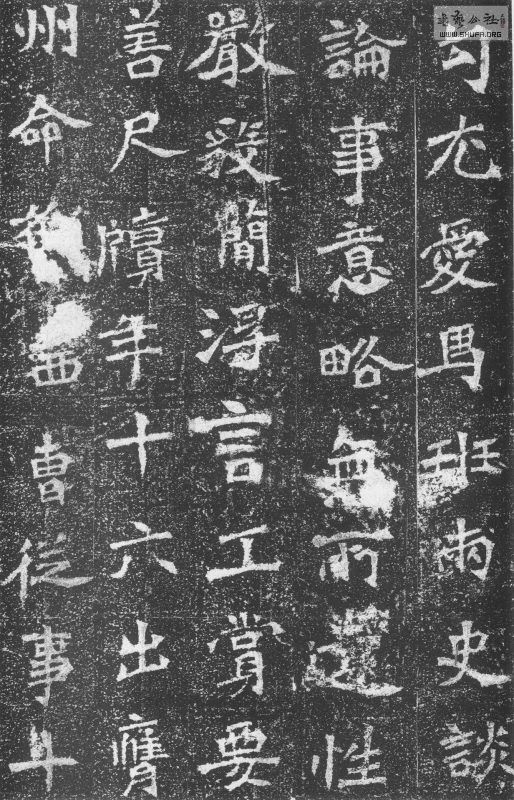 句尤愛馬班兩史談
論事意略無所遺性
嚴毅簡淂言工賞要
善尺牘年十六出膺
州命西曹從事
書藝公社
WWW.SHUFA.ORG